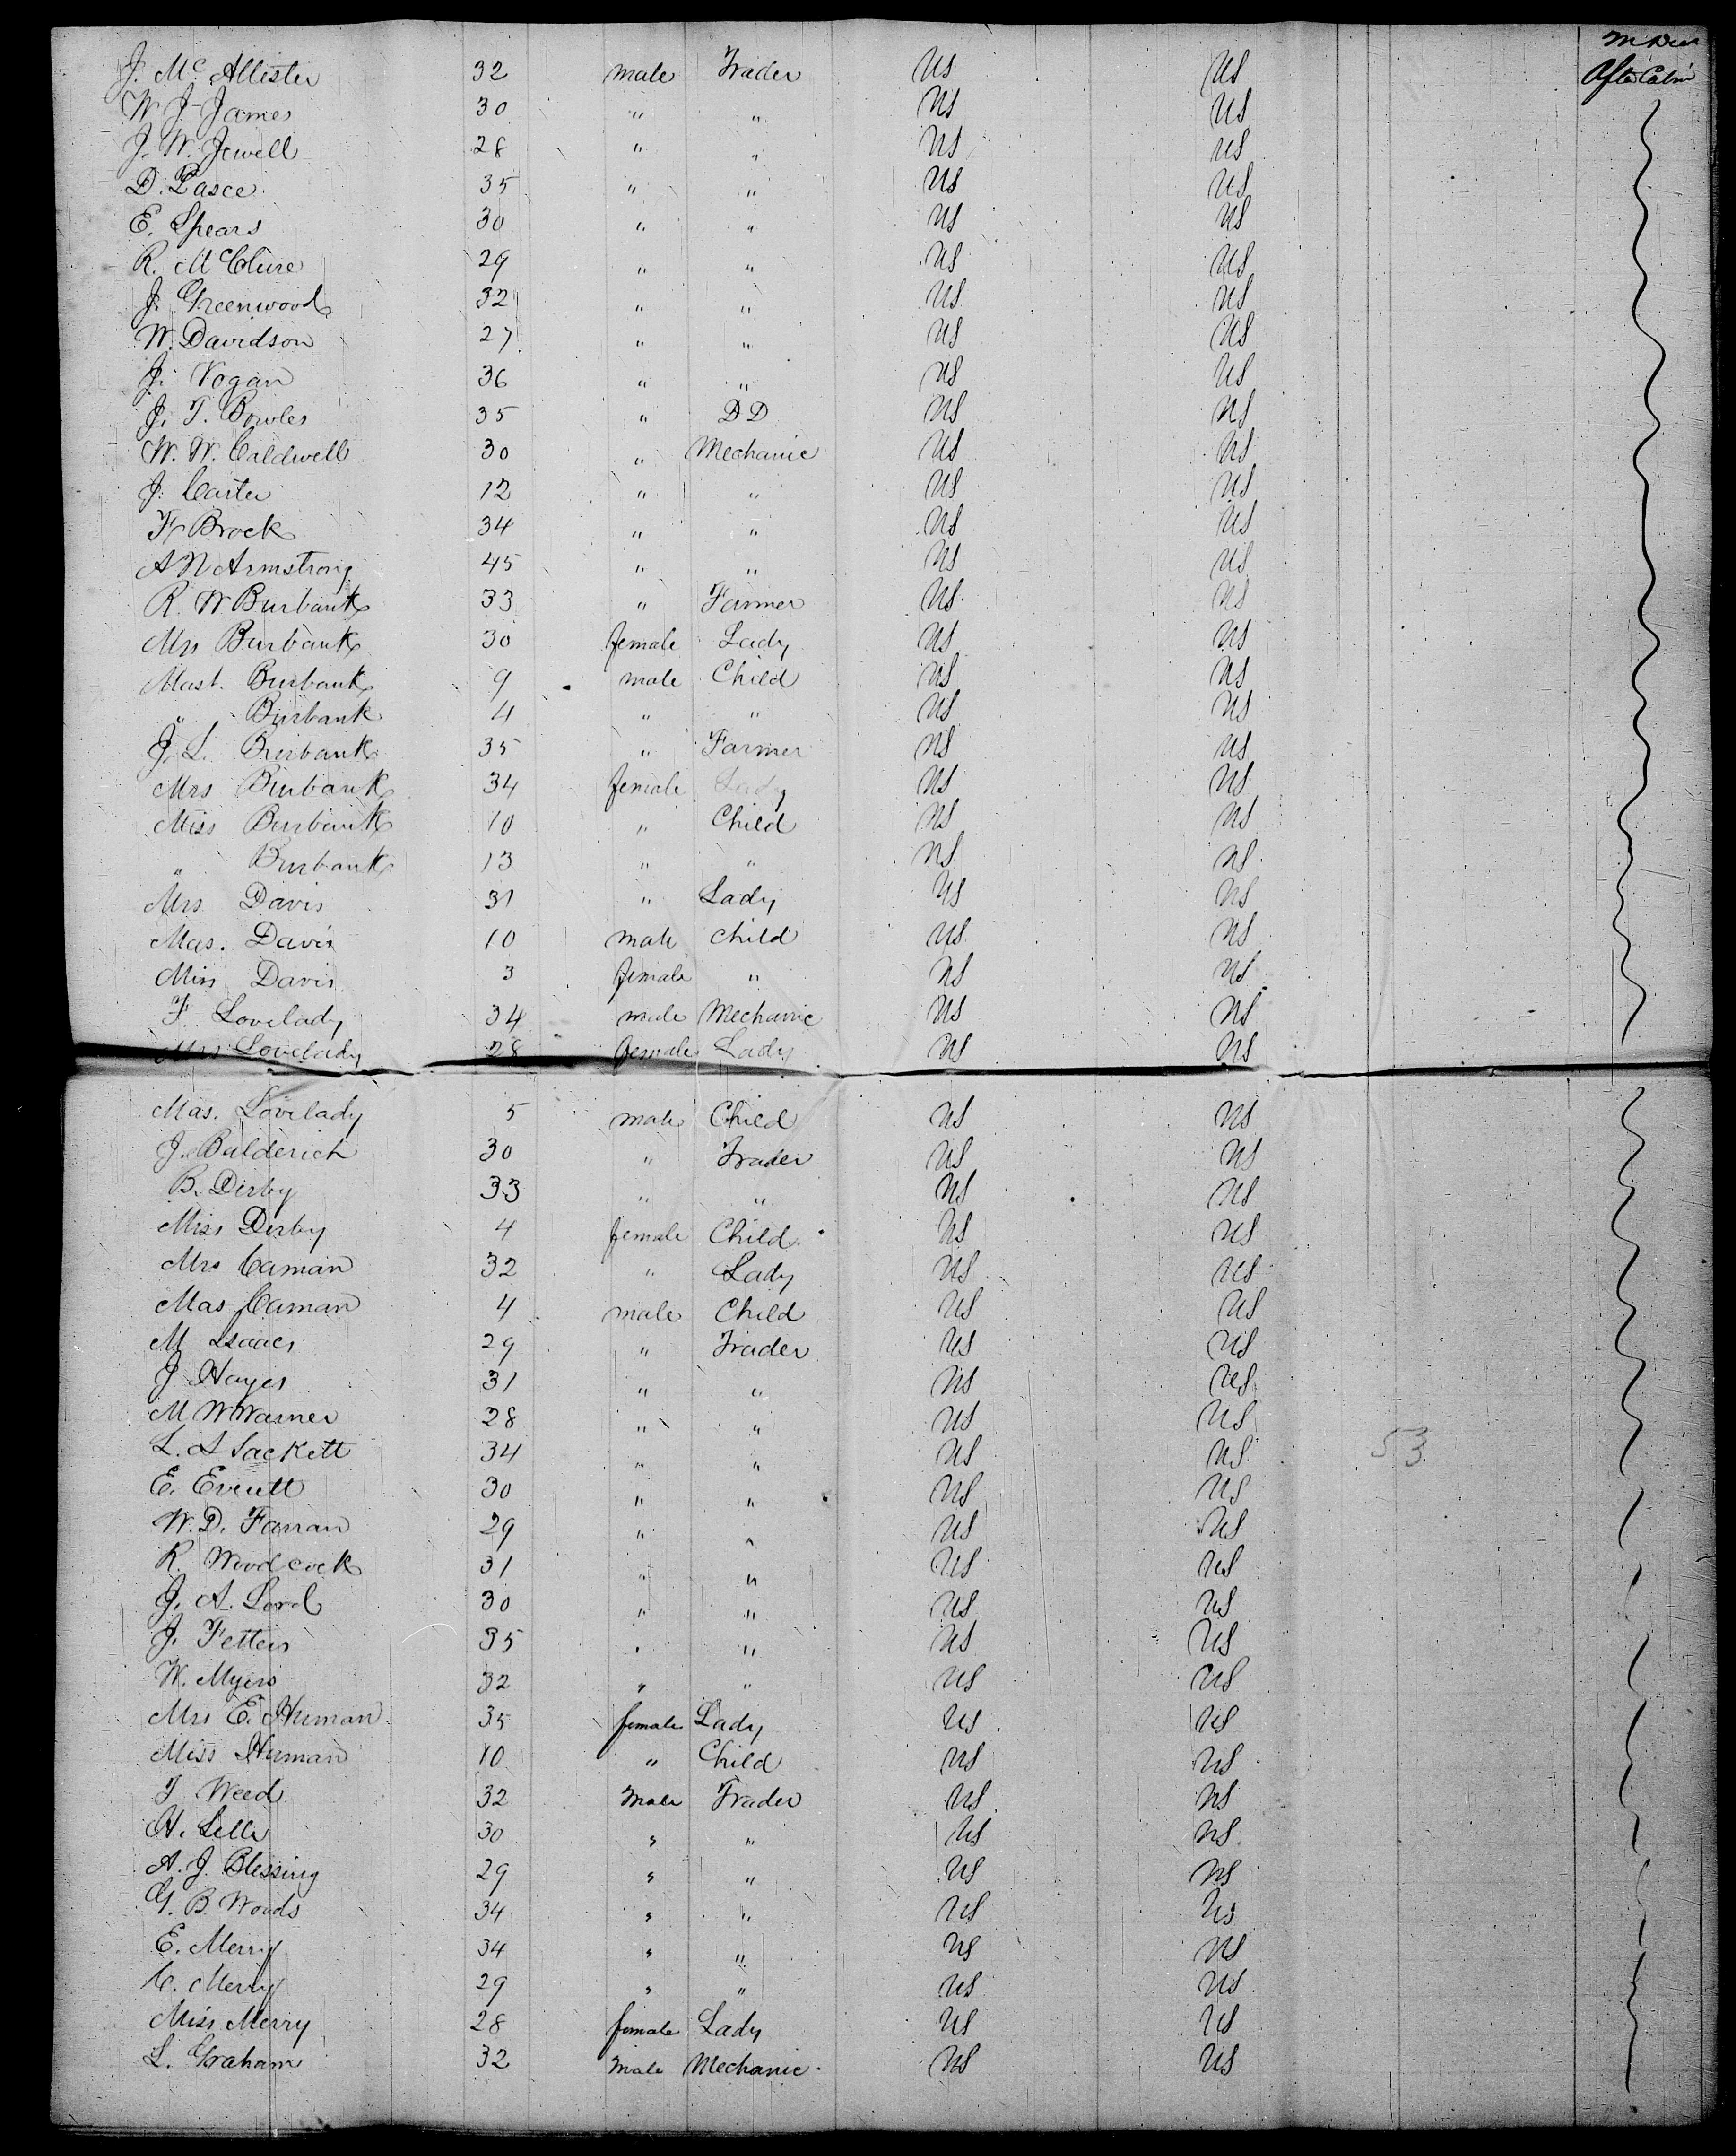 J. McAllister 32 male Trader US US After Cabin
W J James 30 " " US US
J. W. Jewell 28 " " US US
D. Pasce 35 " " US US
E. Spears 30 " " US US
R. McClure 29 " " US US
J. Greenwood 32 " " US US
W. Davidson 27 " " US US
J. Vogan 36 " " US US
J. T. Bowles 35 " DD US US
W. W. Caldwell 30 " Mechanic US US
J. Carter 12 " " US US
F Brock 34 " " US US
A N Armstrong 45 " " US US
R. W Burbank 33 " Farmer US US
Mrs Burbank 30 female Lady US US
Mast. Burbank 9 male Child US US
" Burbank 4 " " US US
J. L. Burbank 35 " Farmer US US
Mrs Burbank 34 female Lady US US
Miss Burbank 10 " Child US US
" Burbank 13 " " US US
Mrs Davis 31 " Lady US US
Mas. Davis 10 male child US US
Miss Davis 3 female " US US
F. Lovelady 34 male Mechanic US US
Mrs Lovelady 28 female Lady US US
Mas. Lovelady 5 male Child US US
J. Balderich 30 " Trader US US
B. Dirby 33 " " US US
Miss Dirby 4 female Child US US
Mrs Caman 32 " Lady US US
Mas Caman 4 male Child US US
M Isaacs 29 " Trader US US
J Hayes 31 " " US US
M W Warner 28 " " US US
L. A Sackett 34 " " US US 53
E. Everett 30 " " US US
W. D. Farran 29 " " US US
R. Woodcock 31 " " US US
J. A. Lord 30 " " US US
J. Fetters 35 " " US US
W. Myers 32 " " US US
Mrs E. Human 35 female Lady US US
Miss Human 10 " Child US US
T Weed 32 Male Trader US US
H. Lelle 30 " " US US
A. J. Blessing 29 " " US US
G. B. Woods 34 " " US US
E. Merry 34 " " US US
C. Merry 29 " " US US
Miss Merry 28 female Lady US US
L. Graham 32 Male Mechanic US US